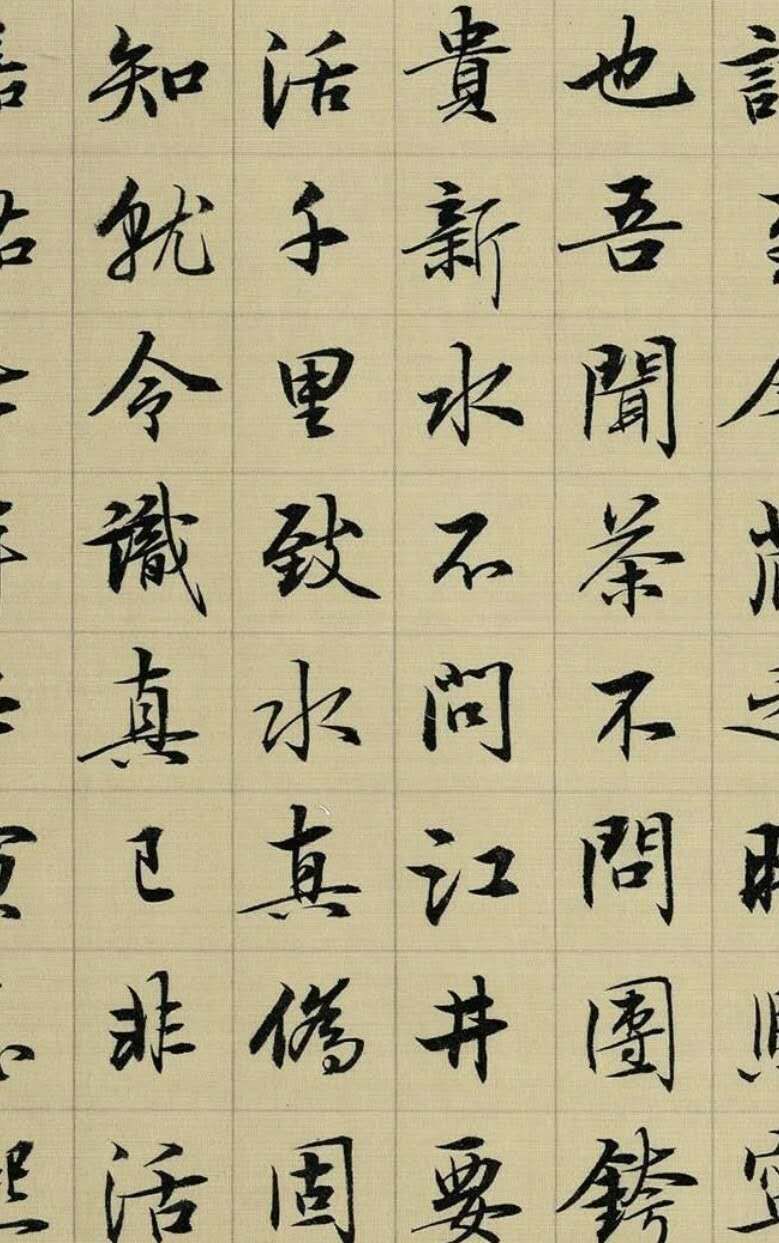 也吾聞茶不問團銙
貴新水不問江井要
活千里致水真僞固
知就令識真已非活